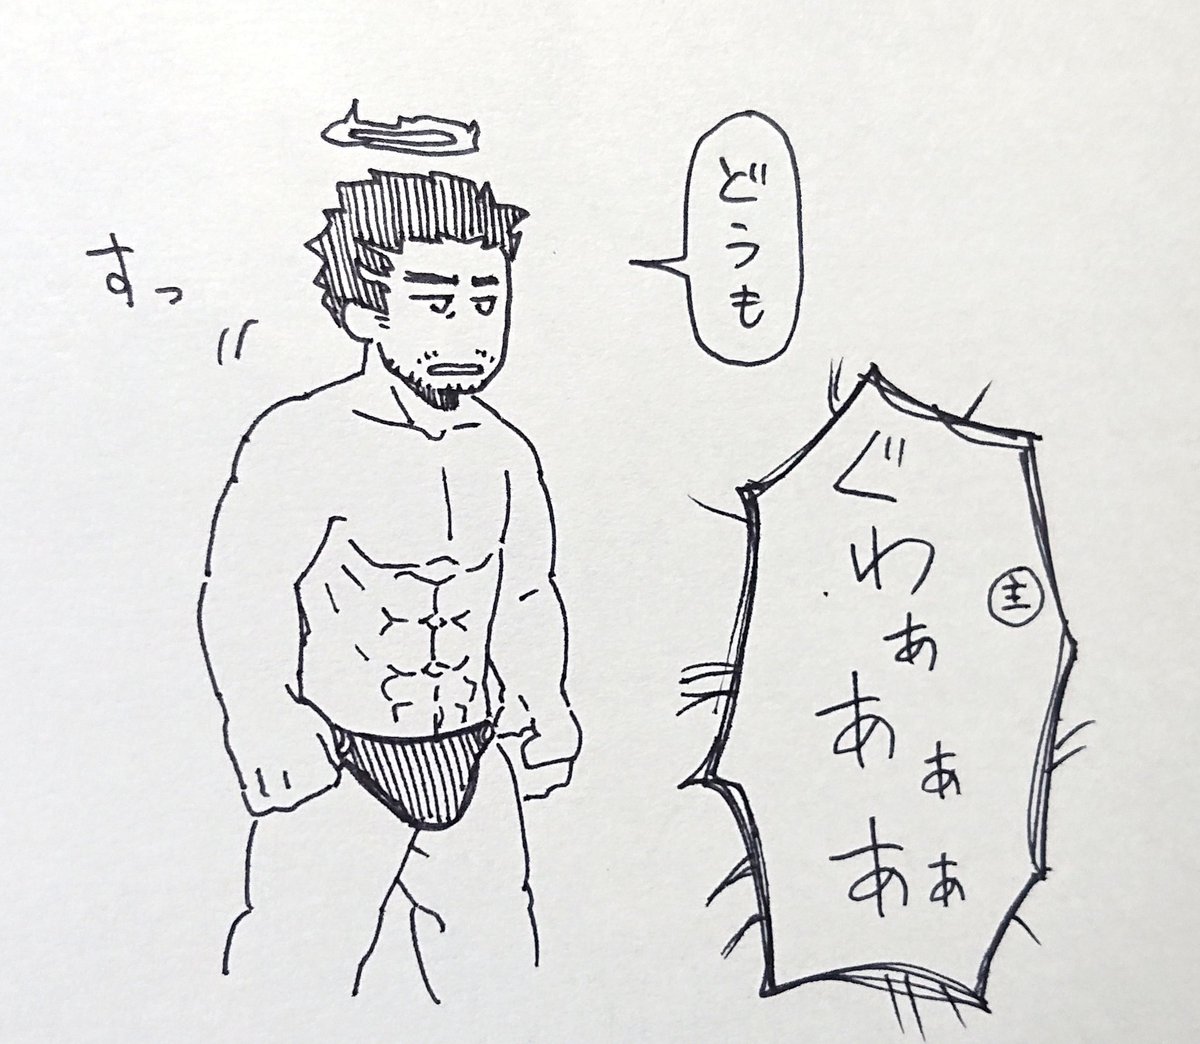 どうも
すっ
ぐわぁあぁあぁ
主